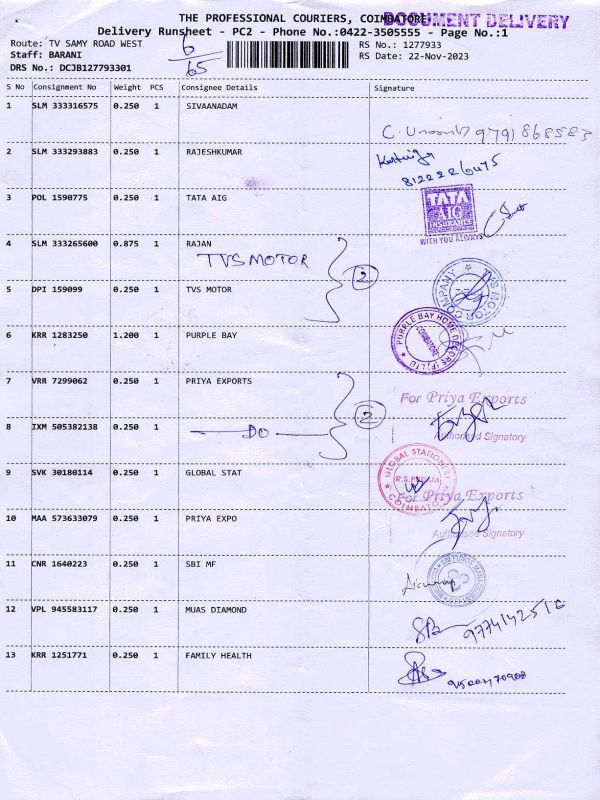 THE PROFESSIONAL COURIERS, COIMBATORE
DOCUMENT DELIVERY
Delivery Runsheet - PC2 - Phone No.:0422-3505555 - Page No.:1
Route: TV SAMY ROAD WEST
RS No.: 1277933
Staff: BARANI
RS Date: 22-Nov-2023
DRS No.: DCJB127793301
6
65
S No Consignment No Weight PCS Consignee Details Signature
1 SLM 333316575 0.250 1 SIVAANADAM
9791868583
2 SLM 333293883 0.250 1 RAJESHKUMAR
8122226475
3 POL 1590775 0.250 1 TATA AIG
TATA
AIG
INSURANCE
WITH YOU ALWAYS
4 SLM 333265600 0.875 1 RAJAN
TVS MOTOR
2
5 DPI 159099 0.250 1 TVS MOTOR
TVS MOTOR COMPANY
6 KRR 1283250 1.200 1 PURPLE BAY
PURPLE BAY HOME DECORS (P) LTD
COIMBATORE
7 VRR 7299062 0.250 1 PRIYA EXPORTS
For Priya Exports
2
8 IXM 505382138 0.250 1 DO
Authorised Signatory
9 SVK 30180114 0.250 1 GLOBAL STAT
GLOBAL STATIONERY
R.S.PURAM
COIMBATORE
For Priya Exports
10 MAA 573633079 0.250 1 PRIYA EXPO
Authorised Signatory
11 CNR 1640223 0.250 1 SBI MF
12 VPL 945583117 0.250 1 MUAS DIAMOND
9774142516
13 KRR 1251771 0.250 1 FAMILY HEALTH